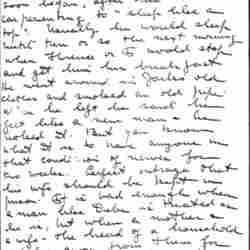 soon began, after his
carpentering, to sleep like a
top". Usually he would sleep
until ten or so the next morning
when Florence or I would stop
and get him his breakfast
He went around in Joulas old
clothes and smoked an old pipe
he left he said he
felt like a new man - he
looked it. But you know
what it is to have anyone in
that condition of nerves for
two weeks. Perfect outrage that
his wife should be kept in
prison. It is bad enough when
a man like Debs is treated as
he is, but when a mother &
wife - the head of a household
is away from them for